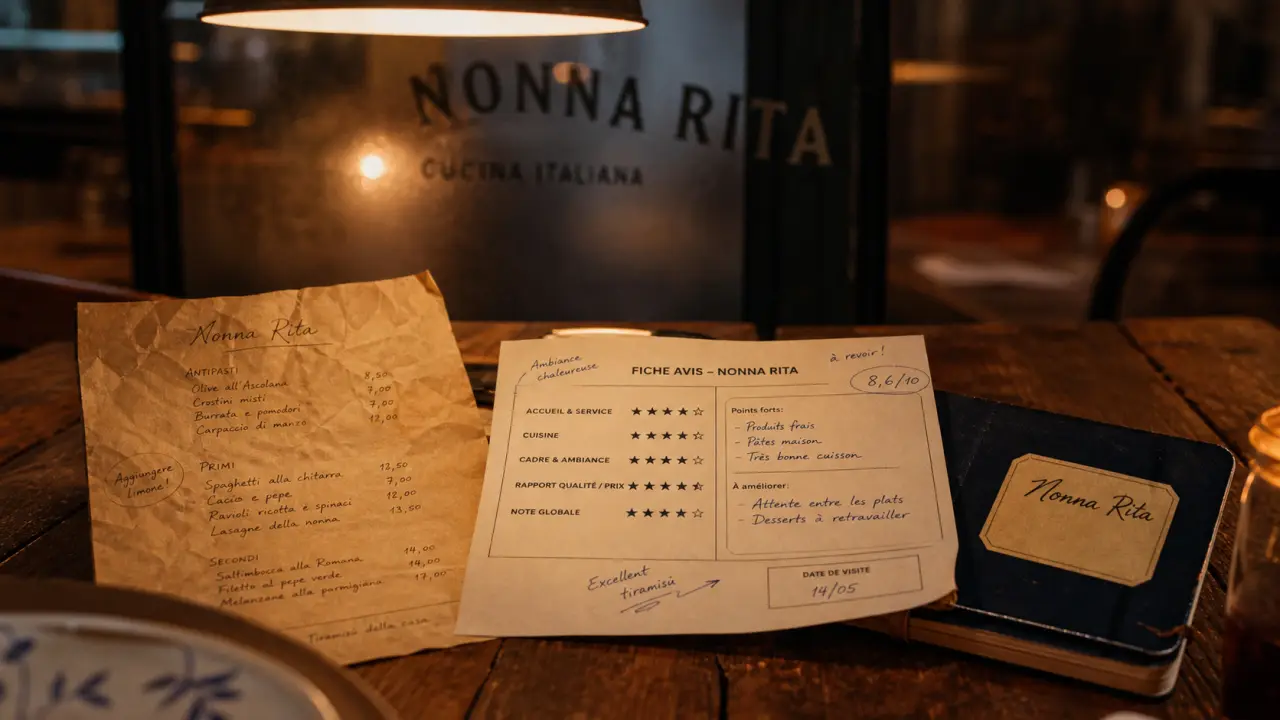 NONNA RITA
CUCINA ITALIANA
Nonna Rita
ANTIPASTI
Olive all'Ascolana 8,50
Crostini misti 7,00
Burrata e pomodori 7,00
Carpaccio di manzo 12,00
Aggiungere
limone!
PRIMI
Spaghetti alla chitarra 12,50
Cacio e pepe 7,00
Ravioli ricotta e spinaci 12,00
Lasagne della nonna 13,50
SECONDI
Saltimbocca alla Romana 14,00
Filetto al pepe verde 14,00
Melanzane alla parmigiana 17,00
Tiramisù della casa
Ambiance
chaleureuse
FICHE AVIS – NONNA RITA
à revoir!
8,6/10
ACCUEIL & SERVICE ★★★★☆
CUISINE ★★★★☆
CADRE & AMBIANCE ★★★★☆
RAPPORT QUALITÉ / PRIX ★★★★⯪
NOTE GLOBALE ★★★★☆
Points forts:
- Produits frais
- Pâtes maison
- Très bonne cuisson
À améliorer:
- Attente entre les plats
- Desserts à retravailler
Excellent
tiramisù
DATE DE VISITE
14/05
Nonna Rita